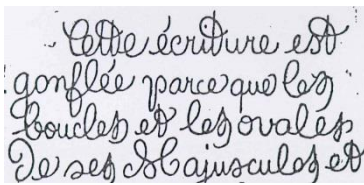 Cette écriture est
gonflée parce que les
boucles et les ovales
de ses Majuscules et